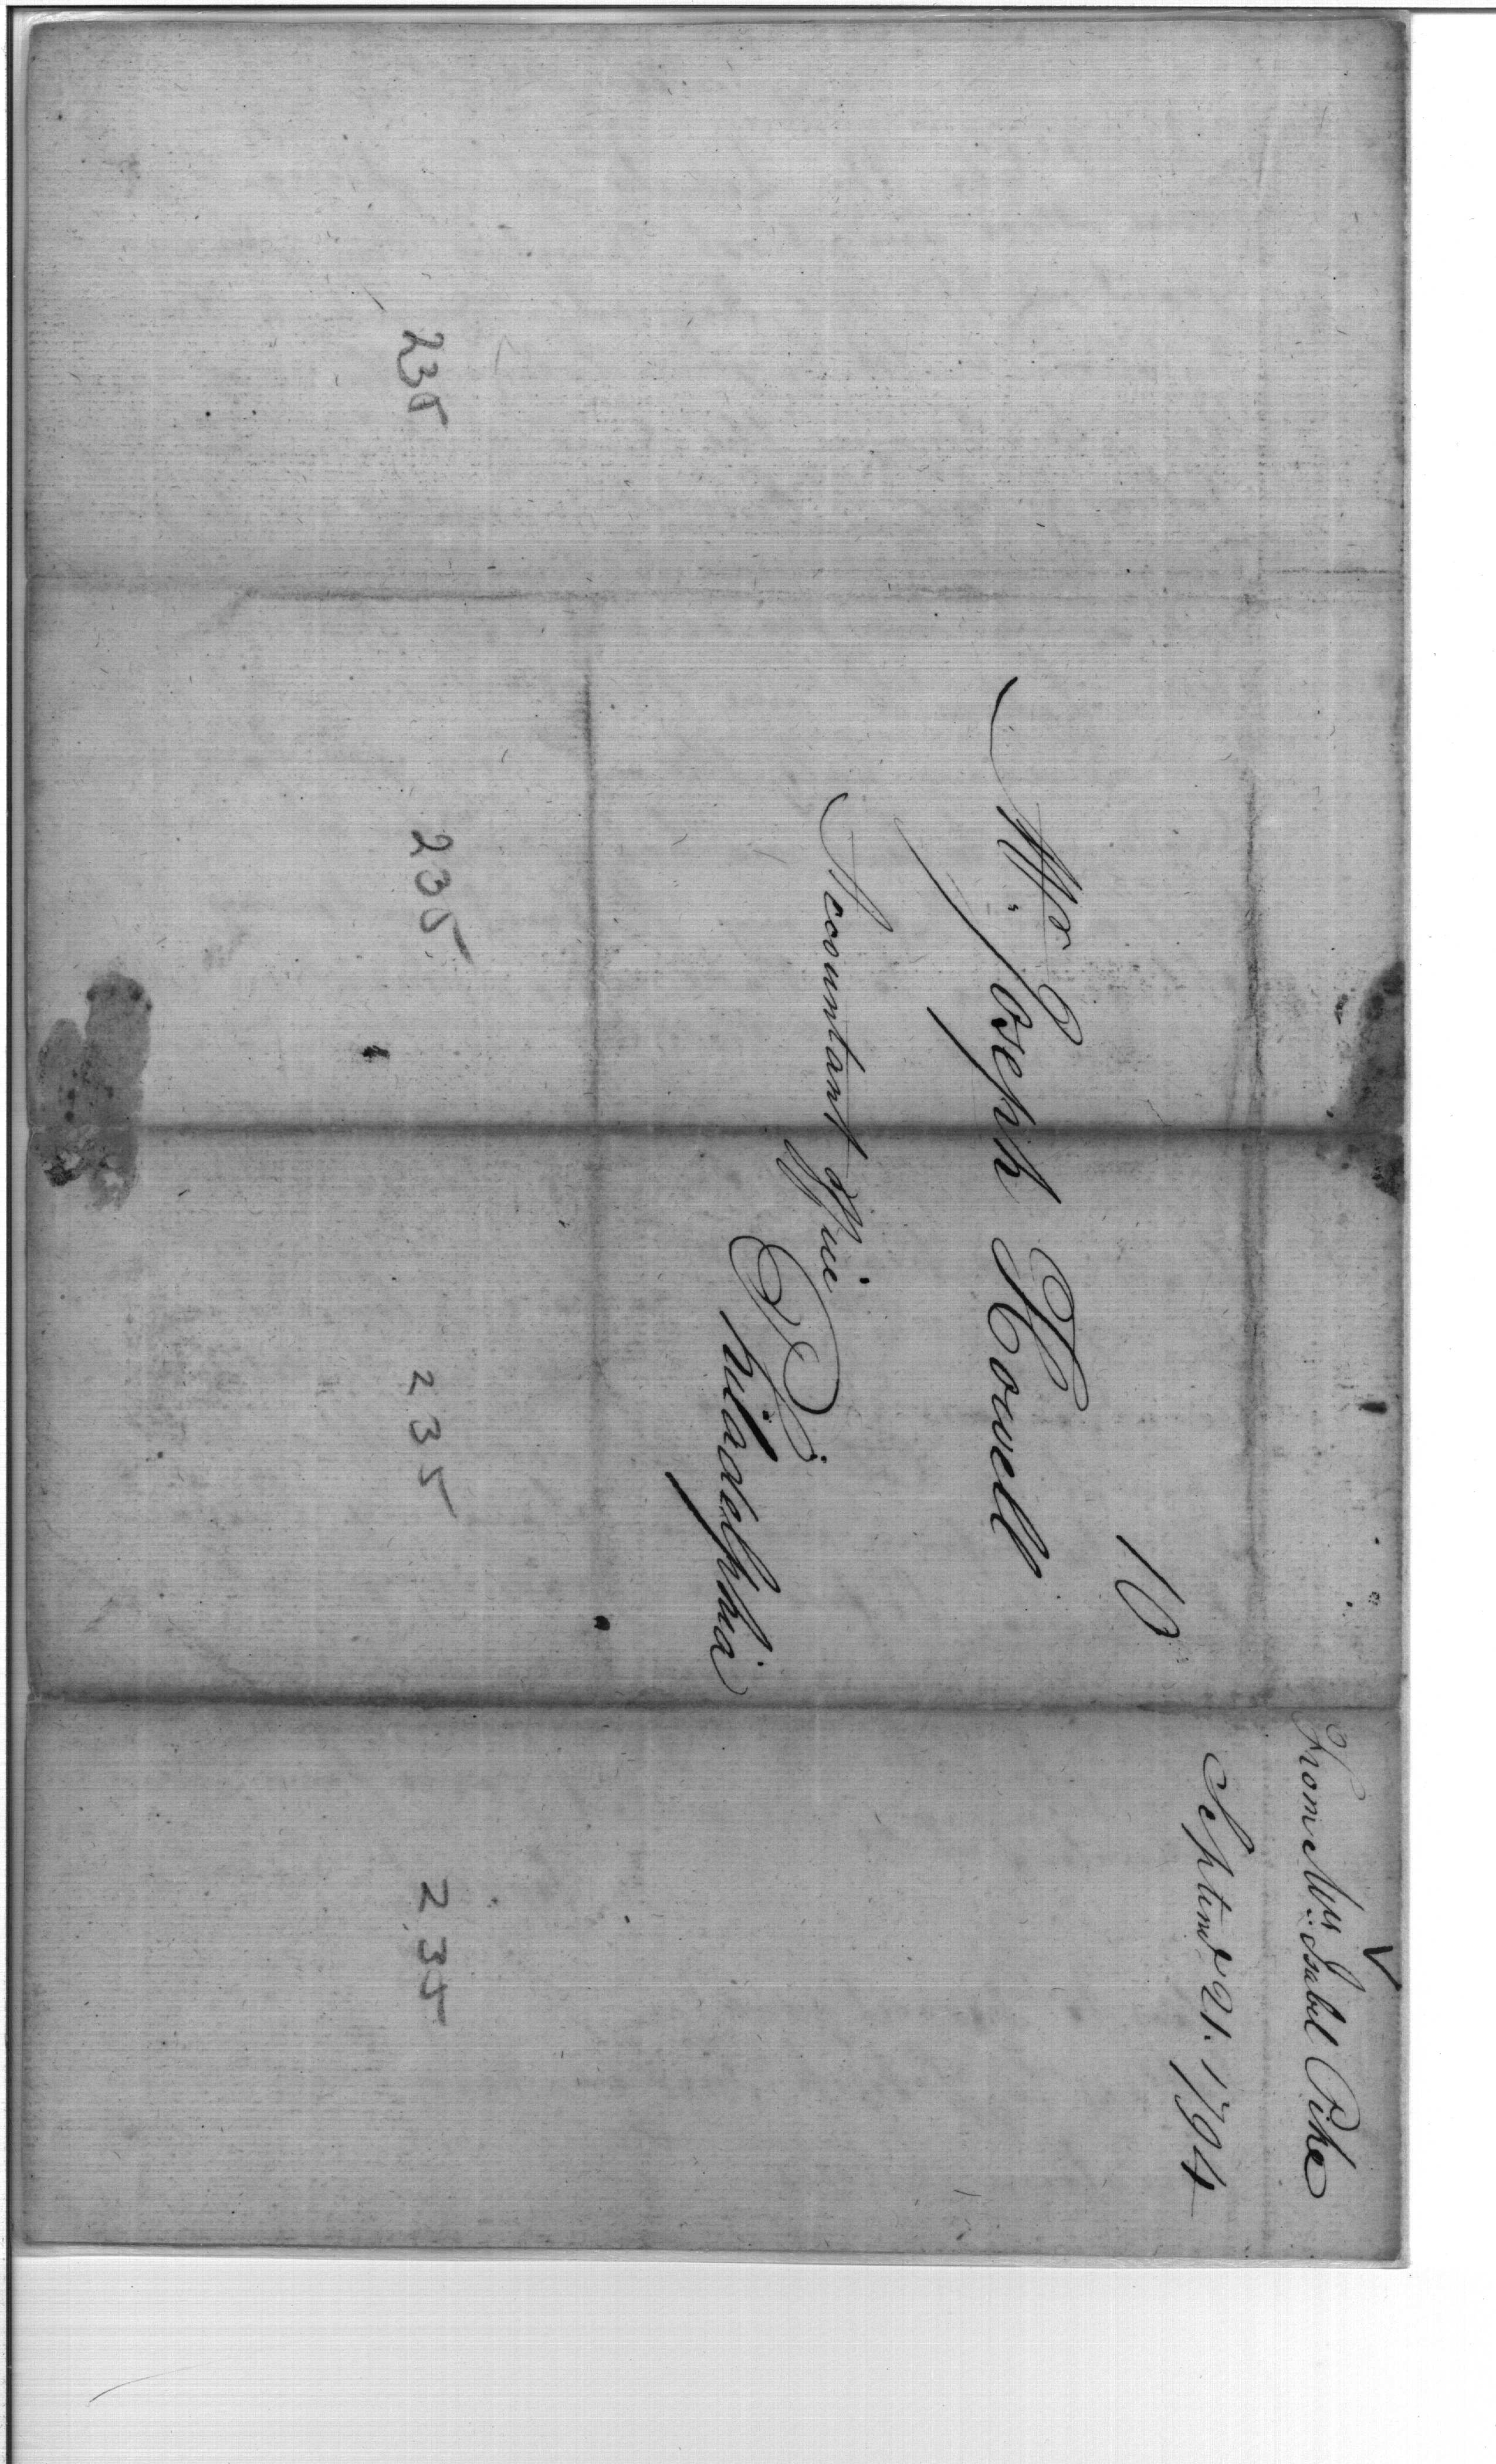 From Mrs: Isabel Pike
Septemr 21. 1794
10
Mr: Joseph Howell
Accountant office
Philadelphia
235 235 235 235